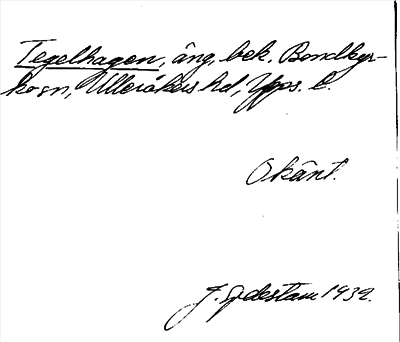 Tegelhagen, äng, bek. Bondkyr-
ko sn, Ulleråkers hd, Upps. l.
Okänt.
J. Sjdestam 1932.